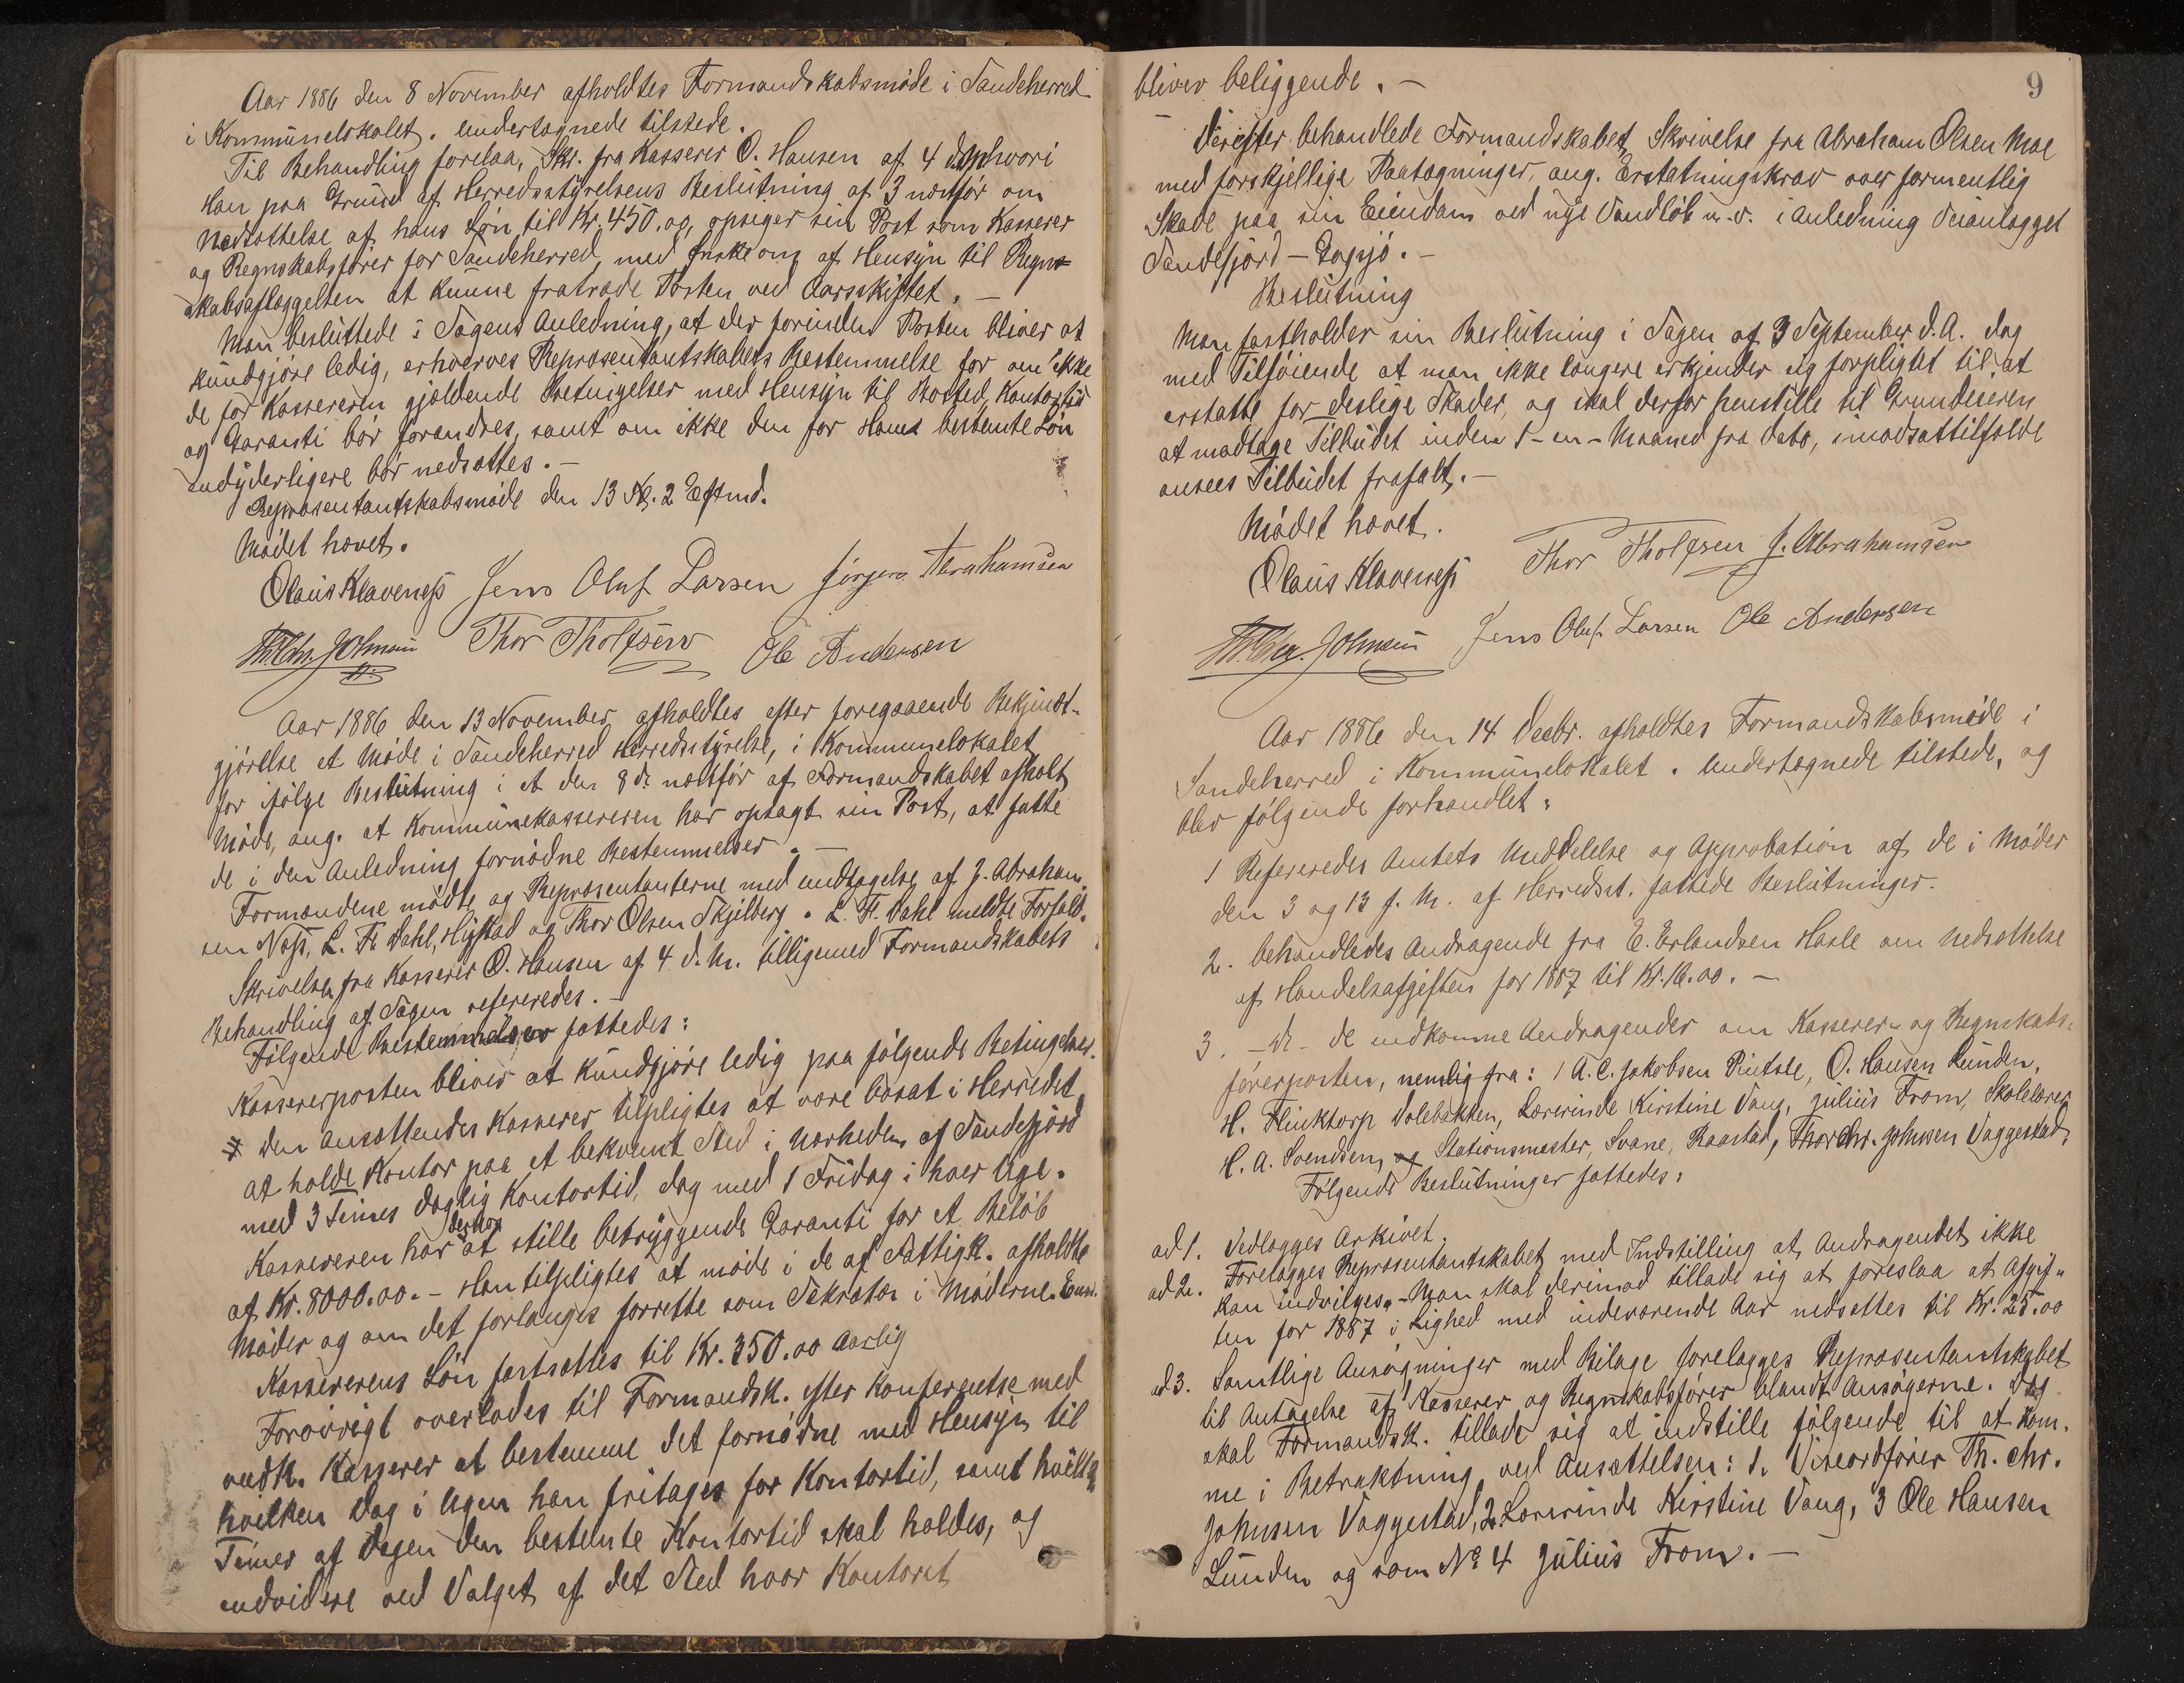 Aar 1886 den 8 November afholdtes Formandskabsmøde i Sandeherred
i Kommunelokalet. Undertegnede tilstede.
Til Behandling forelaa, Skr. fra Kasserer O. Hansen af 4 d. M. hvori
Han paa Grund af Herredsstyrelsens Beslutning af 3 næstfør om
Nedsættelse af hans Løn til Kr. 450.00, opsiger sin Post som Kasserer
og Regnskabsfører for Sandeherred, med Ønske om af Hensyn til Regn-
skabsaflæggelsen at kunne fratræde Posten ved Aarsskiftet. —
Man besluttede i Sagens Anledning, at der forinden Posten bliver at
kundgjøre ledig, erhverves Repræsentantskabets Bestemmelse for om ikke
de for Kassereren gjældende Betingelser med Hensyn til Bosted, Kontortid
og Garanti bør forandres, samt om ikke den for Ham bestemte Løn
endyderligere bør nedsættes. —
Repræsentantskabsmøde den 13 Kl. 2 Eftmd.
Mødet hævet.
Olaus Klaveness Jens Oluf Larsen Jørgen Abrahamsen
Th. Chr. Johnsen Thor Tholfsen Ole Andersen
Aar 1886 den 13 November afholdtes efter foregaaende Bekjendt-
gjørelse et Møde i Sandeherred Herredsstyrelse, i Kommunelokalet
for ifølge Beslutning i et den 8 ds. næstfør af Formandskabet afholdt
Møde, ang. at Kommunekassereren har opsagt sin Post, at fatte
de i den Anledning fornødne Bestemmelser. —
Formændene mødte og Repræsentanterne med undtagelse af J. Abraham-
sen Næss, L. Fr. Dahl, Hystad og Thor Olsen Skjelberg. L. Fr. Dahl meldte Forfald.
Skrivelsen fra Kasserer O. Hansen af 4 d. M. tilligemed Formandskabets
Behandling af Sagen refereredes. —
Følgende Bestemmelser fattedes:
Kassererposten bliver at kundgjøre ledig paa følgende Betingelser.
Den ansættendes Kasserer tilpligtes at være bosat i Herredet
at holde Kontor paa et bekvemt Sted i Nærheden af Sandefjord
med 3 Timers daglig Kontortid, dog med 1 Fridag i hver Uge.
Kassereren har derhos at stille betryggende Garanti for et Beløb
af Kr. 8000.00. – Han tilpligtes at møde i de af Fattigk. afholdte
Møder og om det forlanges forrette som Sekretær i Møderne.
Kassererens Løn fastsættes til Kr. 350.00 aarlig
Forøvrigt overlades til Formandsk. efter Konference med
vedk. Kasserer at bestemme det fornødne med Hensyn til
hvilken Dag i Ugen han fritages for Kontortid, samt hvilke
Timer af Dagen den bestemte Kontortid skal holdes, og
endvidere ved Valget af det Sted hvor Kontoret
9
bliver beliggende. —
Derefter behandlede Formandskabet Skrivelse fra Abraham Olsen Moe
med forskjellige Paategninger, ang. Erstatningskrav over formentlig
Skade paa sin Eiendom ved nye Vandløb m.v. i Anledning Veianlægget
Sandefjord – Gogsjø. —
Beslutning
Man fastholder sin Beslutning i Sagen af 3 September d. A. dog
med Tilføiende at man ikke længere erkjender sig forpligtet til at
erstatte for deslige Skader, og skal derfor henstille til Grundeieren
at modtage Tilbudet inden 1 – en – Maaned fra Dato, i modsat tilfælde
ansees Tilbudet frafalt. —
Mødet hævet.
Olaus Klaveness Thor Tholfsen J. Abrahamsen
Th. Chr. Johnsen Jens Oluf Larsen Ole Andersen
Aar 1886 den 14 Decbr. afholdtes Formandskabsmøde i
Sandeherred i Kommunelokalet. Undertegnede tilstede, og
blev følgende forhandlet:
1 Refereredes Amtets Meddelelse og Approbation af de i Møder
den 3 og 13 f. M. af Herredsst. fattede Beslutninger.
2. behandledes Andragende fra E. Erlandsen Hasle om Nedsættelse
af Handelsafgiften for 1887 til Kr. 16.00. —
3. – Do – de indkomne Andragender om Kasserer- og Regnskabs-
førerposten, nemlig fra: 1 A. C. Jakobsen Pindsle, O. Hansen Lunden,
H. Flinktorp Dolebakken, Lærerinde Kirstine Vang, Julius From, Skolelærer
C. A. Svendsen, og Stationsmester, Svane, Raastad, Thor Chr. Johnsen Vaggestad.
Følgende Beslutninger fattedes:
ad 1. Vedlægges Arkivet.
ad 2. Forelægges Repræsentantskabet med Indstilling at Andragendet ikke
kan indvilges. – Man skal derimod tillade sig at foreslaa at Afgif-
ten for 1887 i Lighed med indeværende Aar nedsættes til Kr. 25.00
ad 3. Samtlige Ansøgninger med Bilage forelægges Repræsentantskabet
til Antagelse af Kasserer og Regnskabsfører blandt Ansøgerne. Dog
skal Formandsk. tillade sig at indstille følgende til at kom-
me i Betraktning ved Ansættelsen: 1. Viseordfører Th. Chr.
Johnsen Vaggestad, 2. Lærerinde Kirstine Vang, 3 Ole Hansen
Lunden og som No 4 Julius From. —